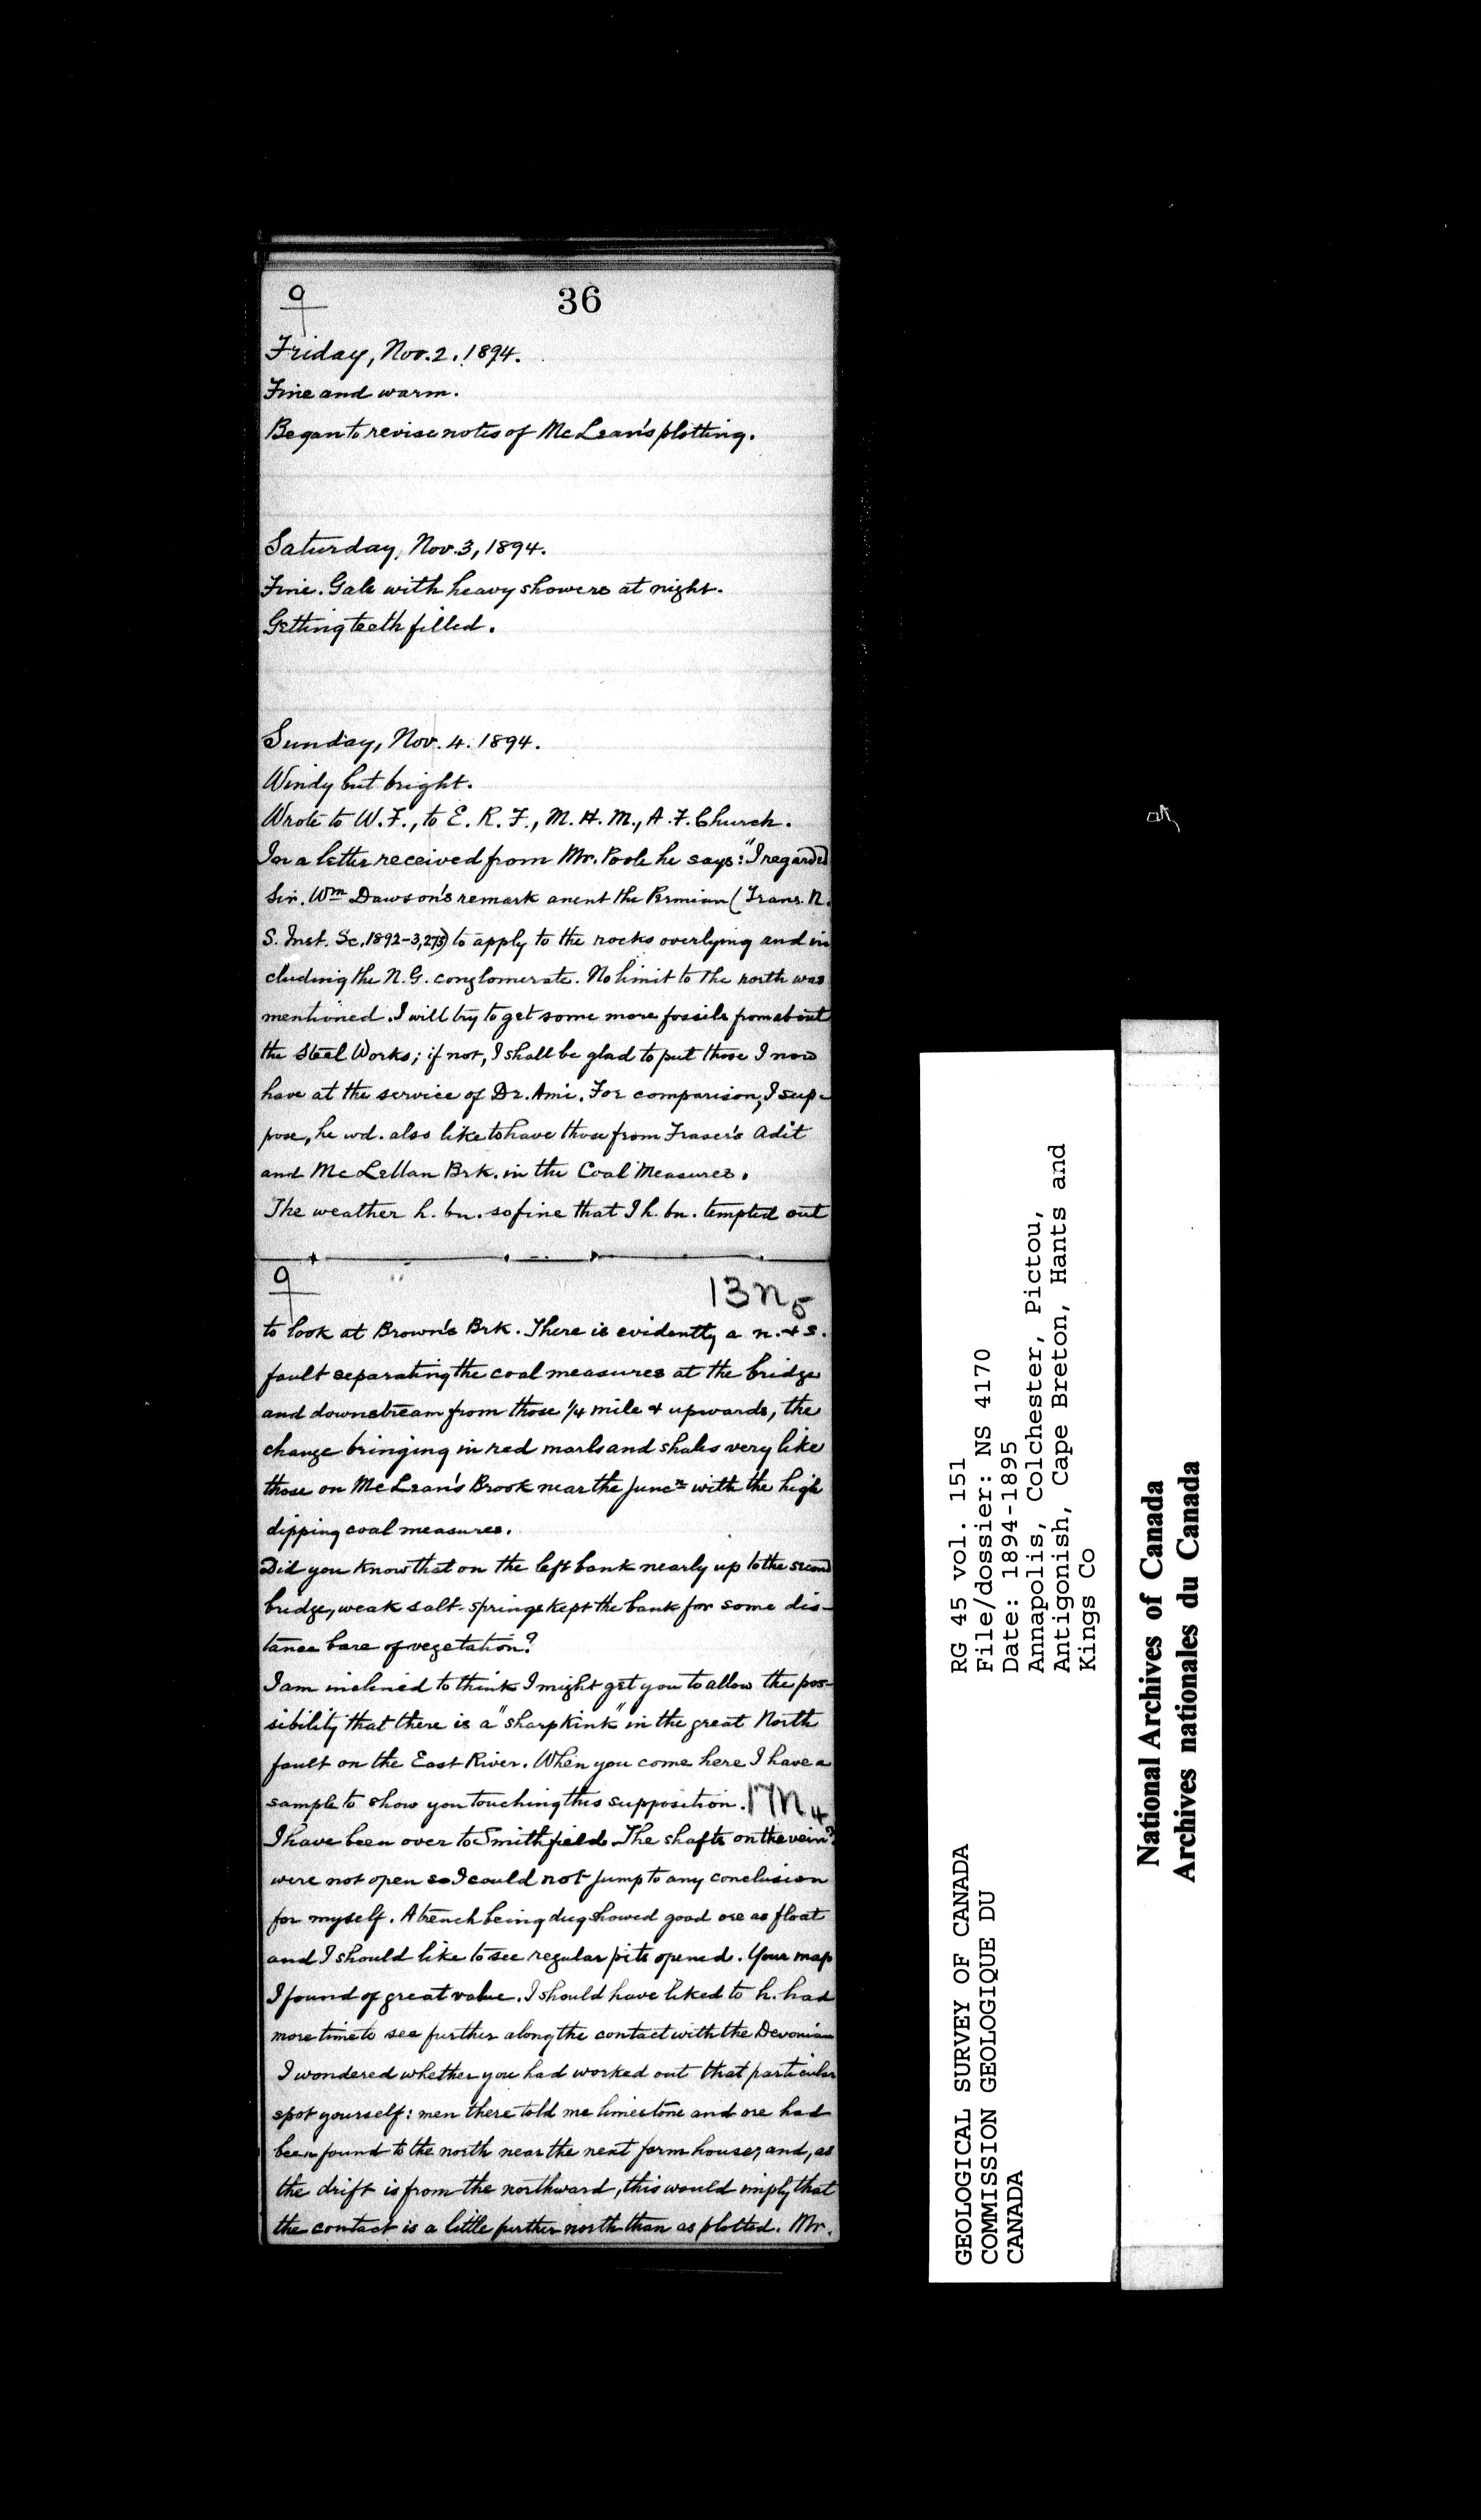 9
36
Friday, Nov. 2. 1894.
Fine and warm.
Began to revise notes of McLean's plotting.
Saturday, Nov. 3, 1894.
Fine. Gale with heavy showers at night.
Getting teeth filled.
Sunday, Nov. 4. 1894.
Windy but bright.
Wrote to W. F., to E. R. F., M. H. M., A. F. Church.
In a letter received from Mr. Poole he says: "I regarded
Sir. Wm Dawson's remark anent the Permian (Trans. N.
S. Inst. Sc. 1892-3, 275) to apply to the rocks overlying and in
cluding the N. G. conglomerate. No limit to the north was
mentioned. I will try to get some more fossils from about
the Steel Works; if not, I shall be glad to put those I now
have at the service of Dr. Ami. For comparison, I sup-
pose, he wd. also like to have those from Fraser's Adit
and McLellan Brk. in the Coal Measures.
The weather h. bn. so fine that I h. bn. tempted out
9
13 n 5
to look at Brown's Brk. There is evidently a n. & s.
fault separating the coal measures at the bridge
and downstream from those 1/4 mile & upwards, the
change bringing in red marls and shales very like
those on McLean's Brook near the juncn with the high
dipping coal measures.
Did you know that on the left bank nearly up to the second
bridge, weak salt-springs kept the bank for some dis-
tance bare of vegetation?
I am inclined to think I might get you to allow the pos-
sibility that there is a "sharp kink" in the great North
fault on the East River. When you come here I have a
sample to show you touching this supposition. 17 n 4
I have been over to Smithfield. The shafts on the vein?
were not open so I could not jump to any conclusion
for myself. A trench being dug showed good ore as float
and I should like to see regular pits opened. Your map
I found of great value. I should have liked to h. had
more time to see further along the contact with the Devonian
I wondered whether you had worked out that particular
spot yourself: men there told me limestone and ore had
been found to the north near the next farm house, and, as
the drift is from the northward, this would imply that
the contact is a little further north than as plotted. Mr.
GEOLOGICAL SURVEY OF CANADA
COMMISSION GEOLOGIQUE DU
CANADA
RG 45 vol. 151
File/dossier: NS 4170
Date: 1894-1895
Annapolis, Colchester, Pictou,
Antigonish, Cape Breton, Hants and
Kings Co
National Archives of Canada
Archives nationales du Canada